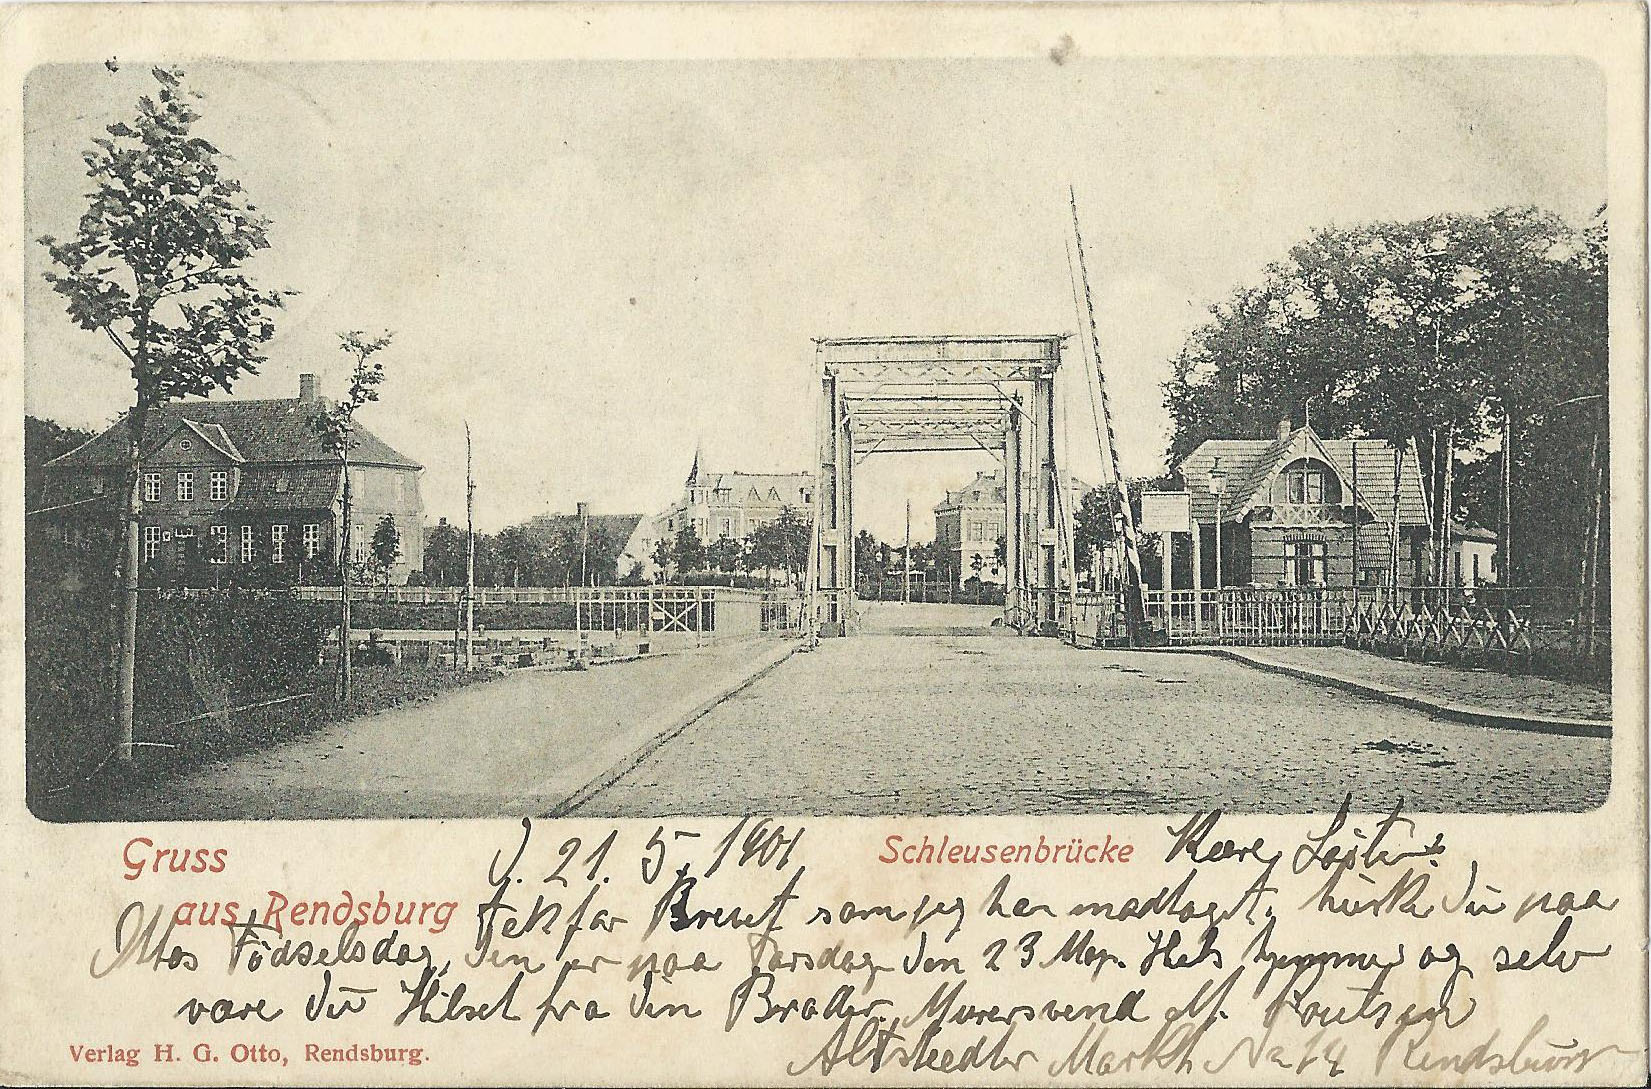 Gruss
aus Rendsburg
Schleusenbrücke
D. 21. 5. 1901
Kære Søster.
Tak for Brevet som jeg har modtaget, husk Du paa
Mos Födselsdag, den er paa Torsdag den 23 Maj. Hils hjemme og selv
være Du Hilset fra din Broder. Murersvend M.
Altstaedter Markt No 14 Rendsburg
Verlag H. G. Otto, Rendsburg.